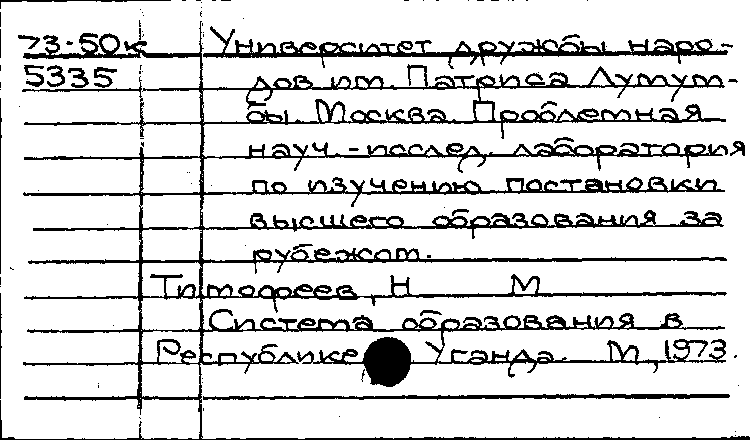 73-50к Университет дружбы наро-
5335 дов им. Патриса Лумум-
бы. Москва. Проблемная
науч.-исслед. лаборатория
по изучению постановки
высшего образования за
рубежом.
Тимофеев, Н М
Система образования в
Республике Уганда. М., 1973.